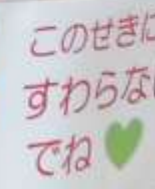 このせきに
すわらない
でね